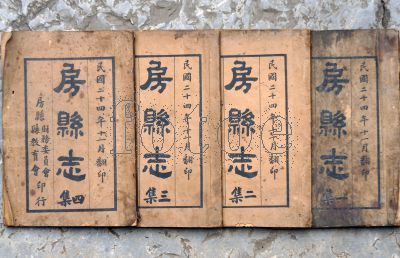 房縣志
四集
民國二十四年十一月翻印
房縣財務委員會
縣教育會印行
房縣志
三集
民國二十四年十一月翻印
房縣志
二集
民國二十四年十一月翻印
房縣志
一集
民國二十四年十一月翻印